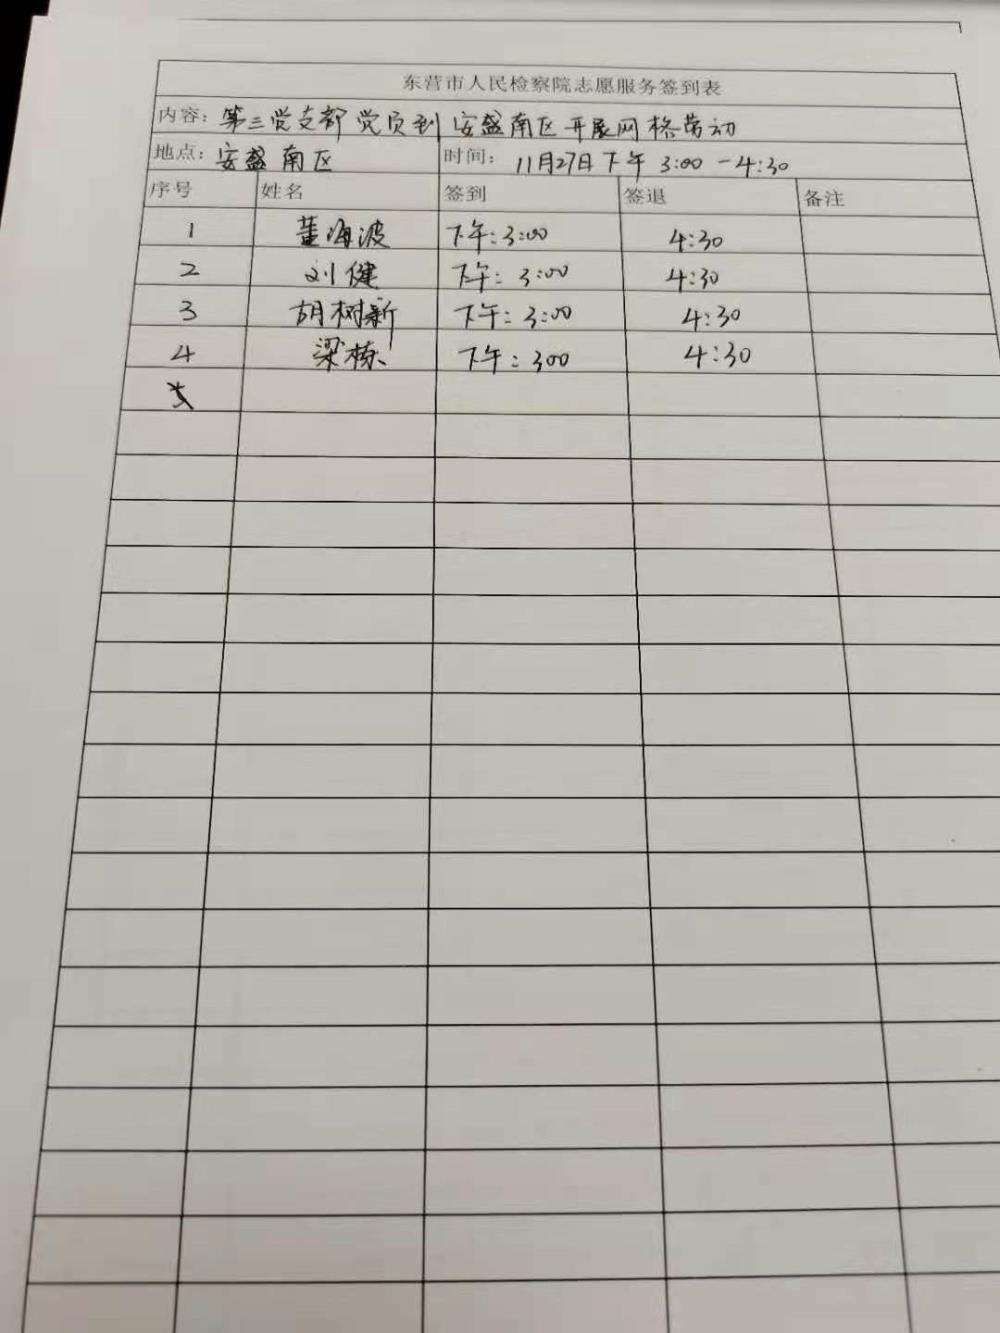 东营市人民检察院志愿服务签到表
内容：第三党支部党员到安盛南区开展网格劳动
地点：安盛南区 时间：11月27日下午 3:00 - 4:30
序号 姓名 签到 签退 备注
1 董海波 下午：3:00 4:30
2 刘健 下午：3:00 4:30
3 胡树新 下午：3:00 4:30
4 梁栋 下午：300 4:30